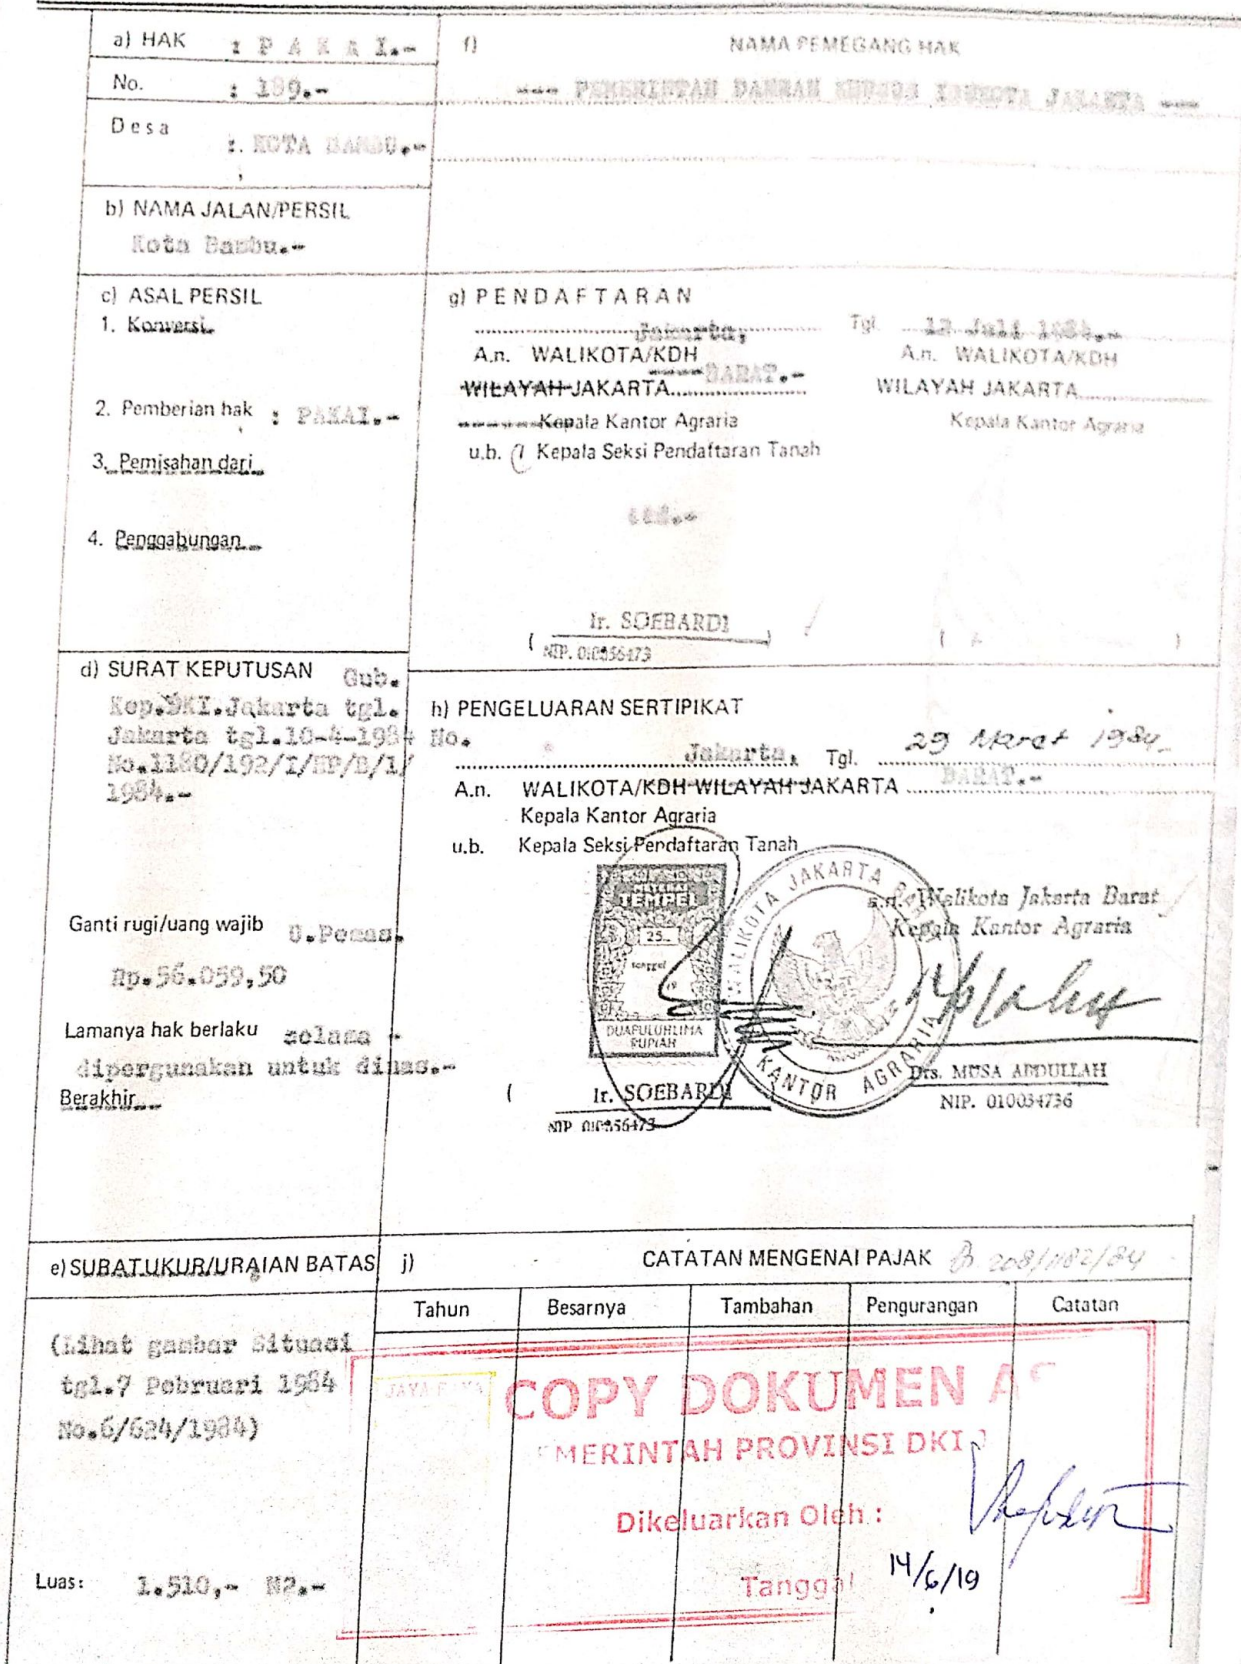 a) HAK : P A K A I.-
No. : 189.-
Desa : KOTA BAMBU.-
b) NAMA JALAN/PERSIL
Kota Bambu.-
c) ASAL PERSIL
1. Konversi
2. Pemberian hak : PAKAI.-
3. Pemisahan dari
4. Penggabungan
d) SURAT KEPUTUSAN Gub.
Kep.DKI.Jakarta tgl.
Jakarta tgl.10-4-1984 No.
No.1180/192/I/HP/B/1/
1984.-
Ganti rugi/uang wajib U.Pemas.
Rp.56.059,50
Lamanya hak berlaku selama -
dipergunakan untuk dinas.-
Berakhir
e) SURAT UKUR/URAIAN BATAS
(Lihat gambar Situasi
tgl.7 Pebruari 1984
No.6/624/1984)
Luas: 1.510,- M2.-
f) NAMA PEMEGANG HAK
--- PEMERINTAH DAERAH KHUSUS IBUKOTA JAKARTA ---
g) PENDAFTARAN
Jakarta, Tgl. 12 Juli 1984.-
A.n. WALIKOTA/KDH
WILAYAH JAKARTA BARAT.-
Kepala Kantor Agraria
u.b. Kepala Seksi Pendaftaran Tanah
ttd.-
( Ir. SOEBARDI )
NIP. 010056473
A.n. WALIKOTA/KDH
WILAYAH JAKARTA
Kepala Kantor Agraria
( )
h) PENGELUARAN SERTIPIKAT
Jakarta, Tgl. 29 Maret 1984
A.n. WALIKOTA/KDH WILAYAH JAKARTA BARAT.-
Kepala Kantor Agraria
u.b. Kepala Seksi Pendaftaran Tanah
METERAI
TEMPEL
25
tanggal
19
DUAPULUHLIMA
RUPIAH
WALIKOTA JAKARTA BARAT
KANTOR AGRARIA
a.n. Walikota Jakarta Barat
Kepala Kantor Agraria
Drs. MUSA ABDULLAH
NIP. 010034736
( Ir. SOEBARDI
NIP 010056473
j) CATATAN MENGENAI PAJAK 208/1182/84
Tahun Besarnya Tambahan Pengurangan Catatan
JAYA RAYA
COPY DOKUMEN AS
EMERINTAH PROVINSI DKI J
Dikeluarkan Oleh :
Tanggal 14/6/19